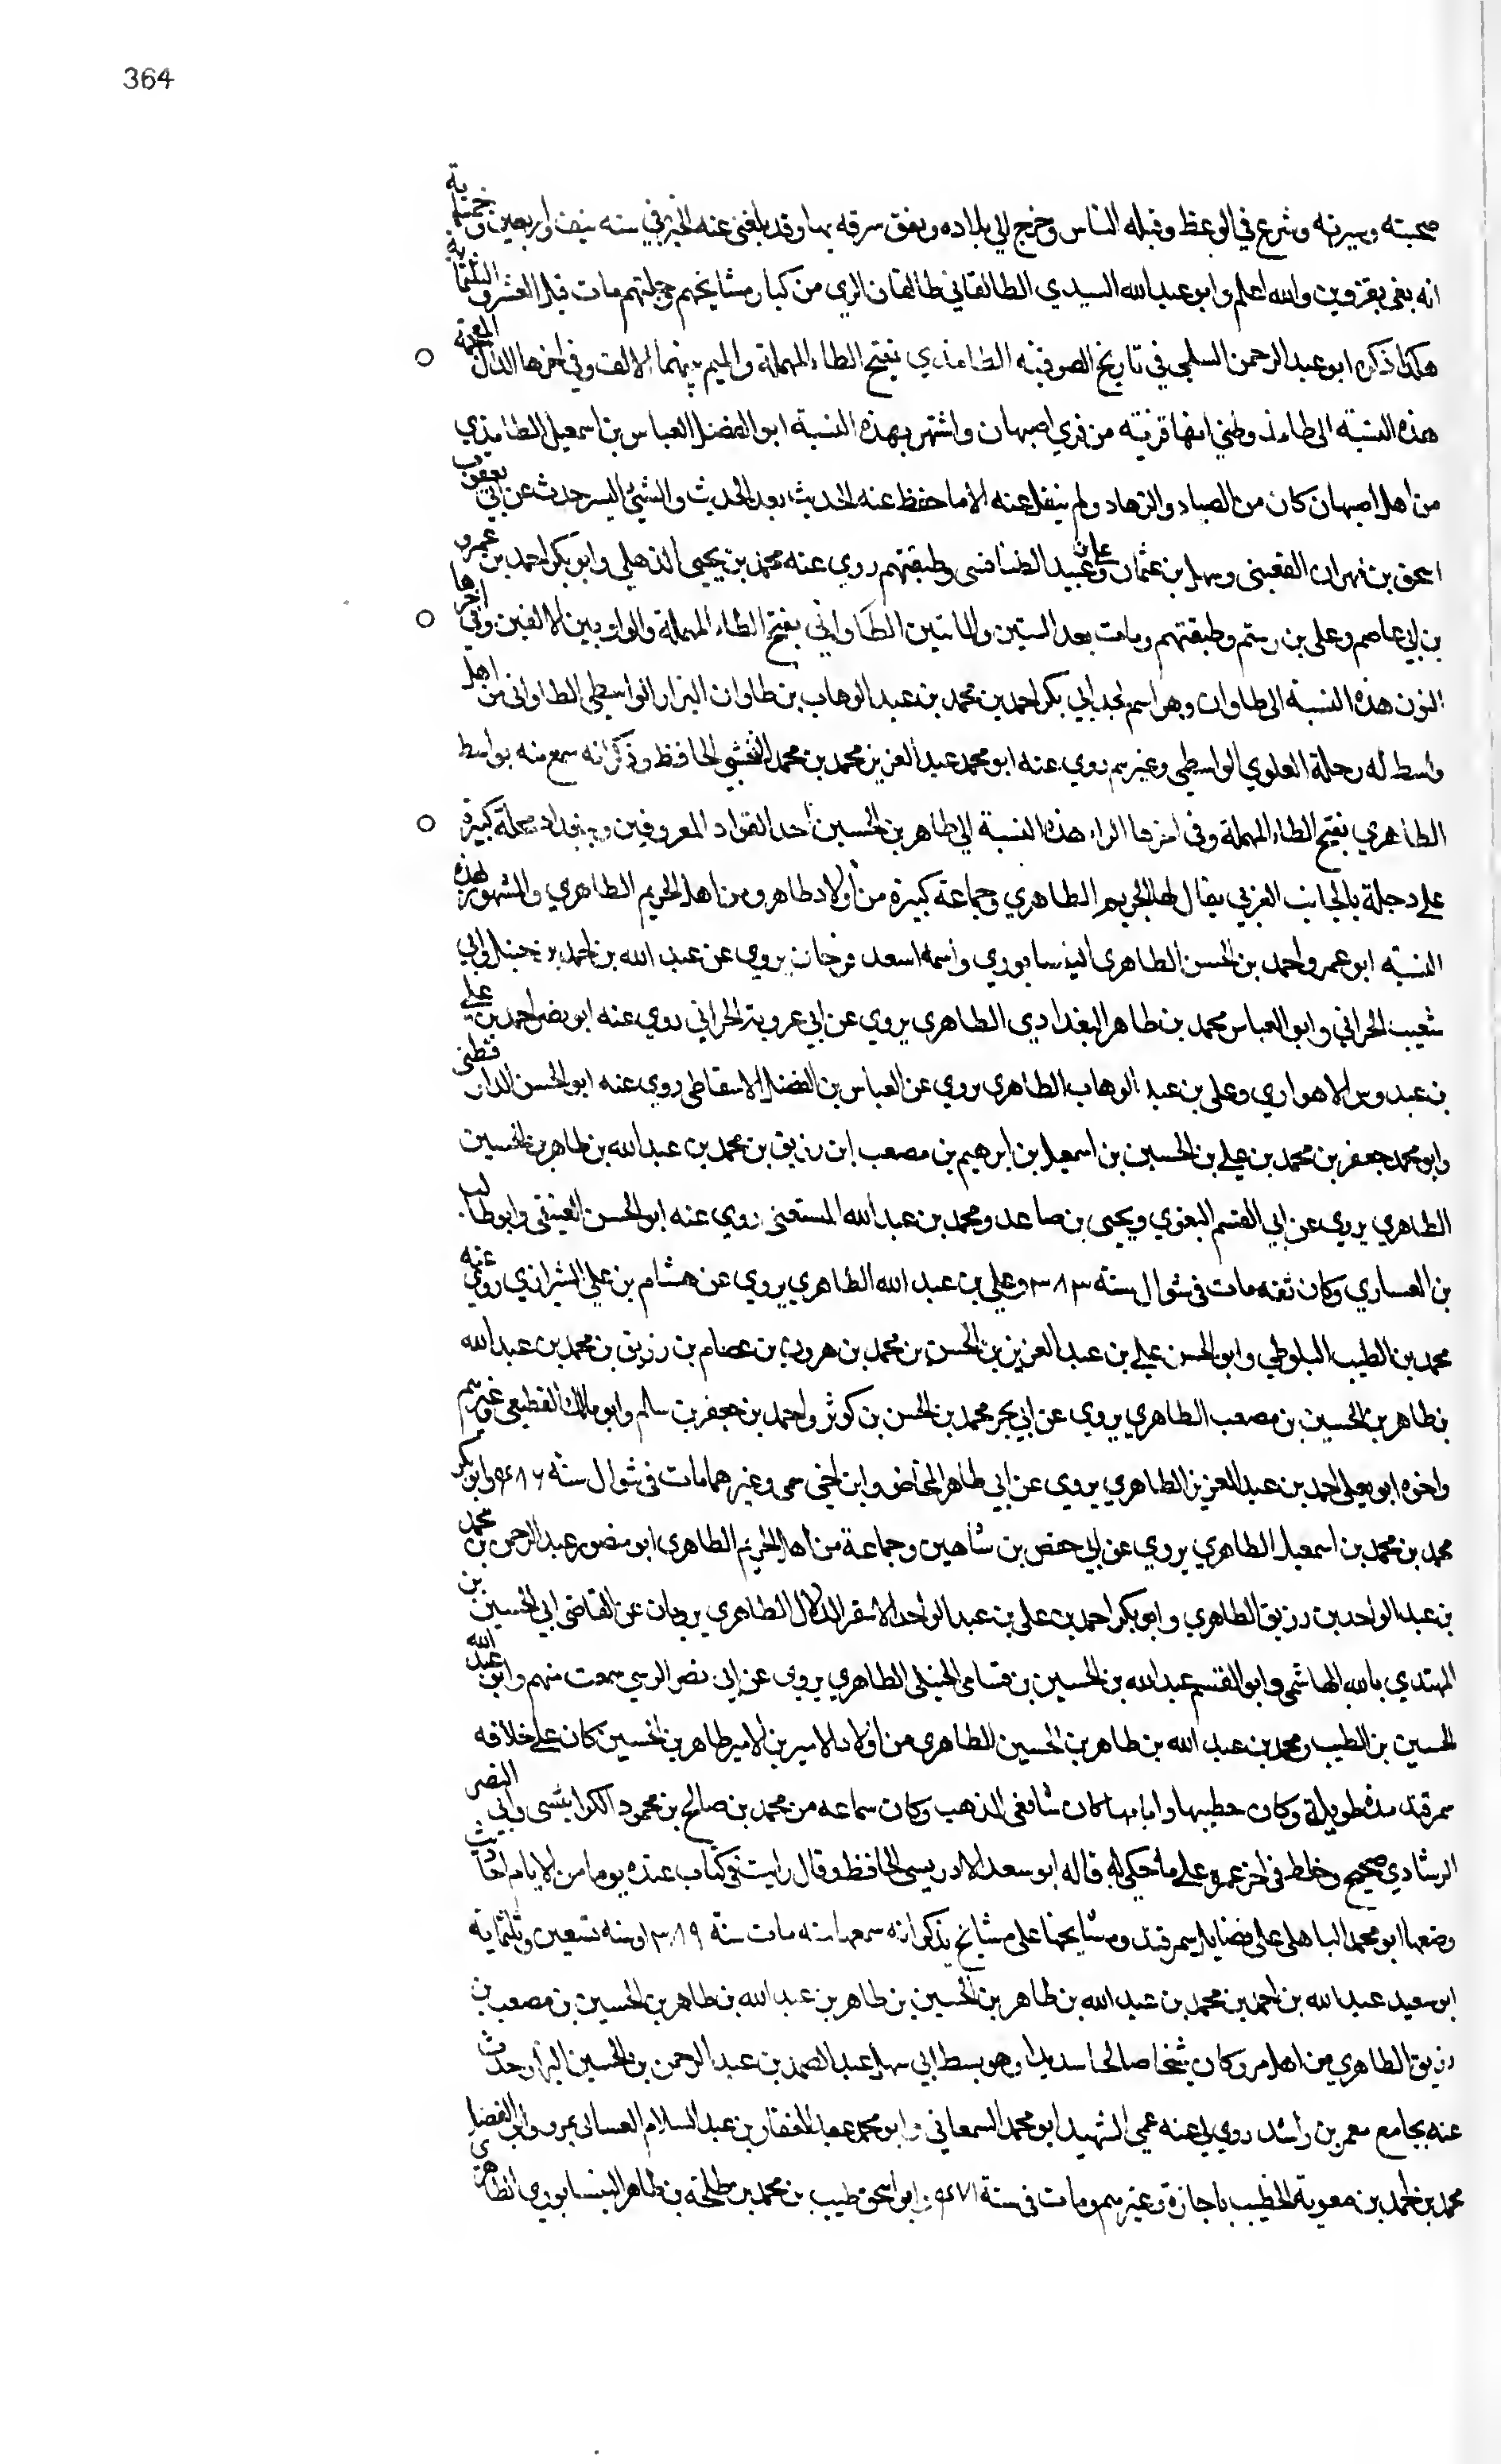 364
صحبته وسيرته وشرع في الوعظ وقبله الناس وخرج الى بلاده ونفق سوقه بها وقد بلغني عنه الخبر في سنه نيف واربعين وخمسماية
انه بقى بقزوين والله اعلم وابو عبد الله السيدي الطالقاني طالقان الري من كبار مشايخهم وجلتهم مات قبل العشر والثلثماية
هكذا ذكره ابو عبد الرحمن السلمي في تاريخ الصوفيه الطامذي بفتح الطاء المهملة والميم بينهما الالف وفي اخرها الدال المعجمة
هذه النسبة الى طامذ وظني انها قرية من قري اصبهان واشتهر بهذه النسبة ابو الفضل العباس بن اسمعيل الطامذي
من اهل اصبهان كان من العباد والزهاد ولم ينقل عنه الا ما حفظ عنه الحديث بعد الحديث والشيئ اليسر حدث عن ابي يعقوب
اسحق بن مهران القعيني وسهل بن عثمان وعلى بن عبيد الطنافسى وطبقتهم روي عنه محمد بن يحيى الذهلي وابو بكر احمد بن عمرو
بن ابي عاصم وعلى بن رستم وطبقتهم ومات بعد الستين والماتين الطاواني بفتح الطاء المهملة والواو بين الالفين وفي اخرها
النون هذه النسبة الى طاوان وهو اسم لجد ابي بكر احمد بن محمد بن عبد الوهاب بن طاوان البزار الواسطي الطاواني من اهل
واسط له رحلة العلوي الواسطي وغيرهم روي عنه ابو محمد عبد العزيز بن محمد بن محمد النخشبي الحافظ وذكر انه سمع منه بواسط
الطاهري بفتح الطاء المهملة وفي اخرها الراء هذه النسبة الي طاهر بن الحسين احد القواد المعروفين وببغداد محلة كبيرة
على دجلة بالجانب الغربي يقال لها الحريم الطاهري وجماعة كبيرة من اولاد طاهر ومن اهل الحريم الطاهري والمشهور بهذه
النسبة ابو عمرو احمد بن الحسن الطاهري النيسابوري واسمه اسعد نوخان يروي عن عبد الله بن احمد بن حنبل وابي
شعيب الحراني وابو العباس محمد بن طاهر البغدادي الطاهري يروي عن ابي عروبة الحراني روي عنه ابو نصر احمد بن علي
بن عبدوس الاهوازي وعلى بن عبد الوهاب الطاهري يروي عن العباس بن الفضل الاسقاطي روي عنه ابو الحسن الدارقطني
وابو محمد جعفر بن محمد بن علي بن الحسين بن اسمعيل بن ابرهيم بن مصعب ابن رزيق بن محمد بن عبد الله بن طاهر بن الحسين
الطاهري يروي عن ابي القسم البغوي ويحيى بن صاعد ومحمد بن عبد الله المستعيني روي عنه ابو الحسن العتيقي وابو طالب
بن العساري وكان ثقه مات في شوال سنة ٣٨٣ وعلي بن عبد الله الطاهري يروي عن هشام بن علي الشيرازي روي عنه
محمد بن الطيب البلوطي وابو الحسن علي بن عبد العزيز بن الحسن بن محمد بن هرون بن عصام بن رزيق بن محمد بن عبد الله
بن طاهر بن الحسين بن مصعب الطاهري يروي عن ابي بحر محمد بن الحسن بن كوثر واحمد بن جعفر بن سالم وابو مالك القطيعي وغيرهم
واخوه ابو يعلى احمد بن عبد العزيز الطاهري يروي عن ابي طاهر المخلص وابن اخي ممى وغيرهما مات في شوال سنة وابو بكر
محمد بن محمد بن اسمعيل الطاهري يروي عن ابي حفص بن شاهين وجماعة من اهل الحريم الطاهري ابو منصور عبد الرحمن بن محمد
بن عبد الواحد بن رزيق الطاهري وابو بكر احمد بن على بن عبد الواحد الاشقر الدلال الطاهري يرويان عن القاضي ابي الحسين بن
المهتدي بالله الهاشمي وابو القسم عبد الله بن الحسين بن قسامي الحنبلي الطاهري يروي عن ابي نصر الزينبي سمعت منهم وابو عبد الله
الحسين بن الطيب ومحمد بن عبد الله بن طاهر بن الحسين الطاهري من اولاد الامير بن الامير طاهر بن الحسين كان على خلافه
سمرقند مدة طويلة وكان خطيبها وامامها كان شافعي المذهب وكان سماعه من محمد بن صالح بن محمود الكرابيسى وابي النضر
الرشادي صحيح وخلط في اخر عمره على ما حكي لي قاله ابو سعد الادريسي الحافظ وقال رايت في كتاب عنده يوما من الايام احاديث
وضعها ابو محمد الباهلي على فضايل سمرقند ومشايخها على مشايخ يذكر انه سمعها منه مات سنة ٣٨٩ او سنه تسعين وثلثماية
ابو سعيد عبد الله بن احمد بن محمد بن عبد الله بن طاهر بن الحسين بن طاهر بن عبد الله بن طاهر بن الحسين بن مصعب بن
رزيق الطاهري من اهل مرو كان شيخا صالحا سديدا وهو بسط ابي سهل عبد الصمد بن عبد الرحمن بن الحسين البزار وحدث
عنه بجامع معمر بن راشد روي لي عنه عمي الشهيد ابو محمد السمعاني وابو محمد عبد الغفار بن عبد السلام الغساني بمرو وابو الفضل
محمد بن احمد بن معوية الخطيب باجازة وغيرهم ومات في سنة وابو اسحق طيب بن محمد بن طلحة بن طاهر النيسابوري الطاهري